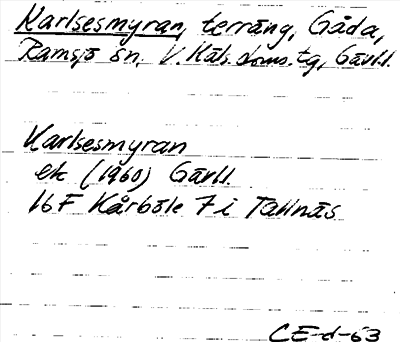 Karlsesmyran, terräng, Gåda,
Ramsjö sn, V. Häls. doms. tg, Gävl.l.
Karlsesmyran
ek (1960) Gävl.l
16F Kårböle 7i Tallnäs
CE-d-63